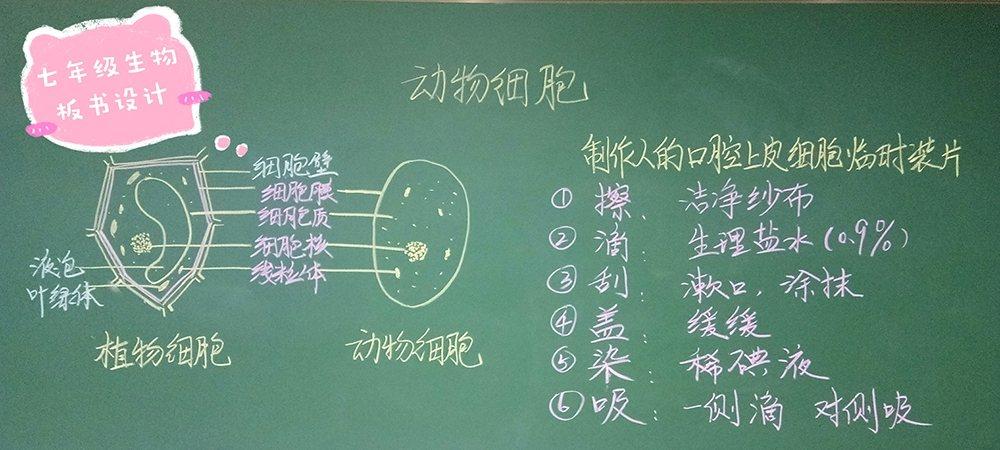 七年级生物
板书设计
动物细胞
细胞壁
细胞膜
细胞质
细胞核
线粒体
液泡
叶绿体
植物细胞
动物细胞
制作人的口腔上皮细胞临时装片
①擦：洁净纱布
②滴：生理盐水(0.9%)
③刮：漱口，涂抹
④盖：缓缓
⑤染：稀碘液
⑥吸：一侧滴 对侧吸